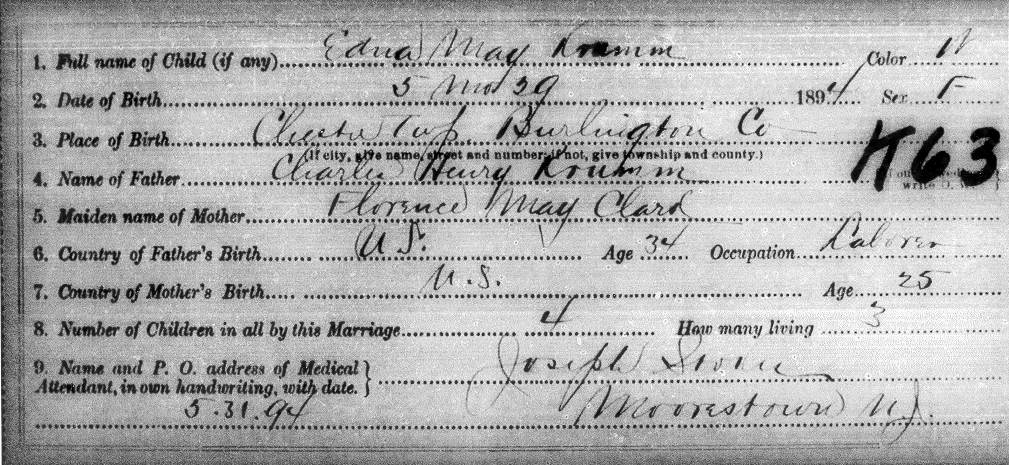 1. Full name of Child (if any) Edna May Krumm Color W
2. Date of Birth 5 Mo 29 1894 Sex F
3. Place of Birth Chester Twp. Burlington Co
(If city, give name, street and number; if not, give township and county.)
K63
4. Name of Father Charles Henry Krumm
write
5. Maiden name of Mother Florence May Clark
6. Country of Father's Birth U.S. Age 34 Occupation Laborer
7. Country of Mother's Birth U.S. Age 25
8. Number of Children in all by this Marriage 4 How many living 3
9. Name and P. O. address of Medical Joseph
Attendant, in own handwriting, with date.
5.31.94 Moorestown N.J.